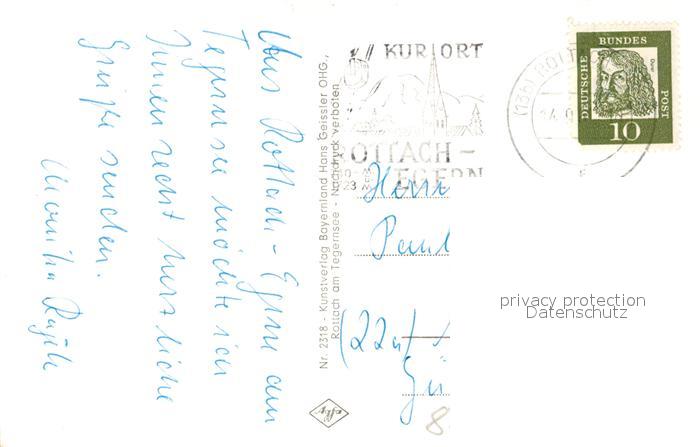 Aus Rottach-Egern am
Tegernsee möchte ich
Ihnen recht herzliche
Grüße senden.
Monika
Nr. 2318 - Kunstverlag Bayernland Hans Geissler OHG.,
Rottach am Tegernsee - Nachdruck verboten
KURORT
ROTTACH-
EGERN
(13b) ROTT
DEUTSCHE
BUNDES
POST
Dürer
10
Herrn
Paul
(22a)
8
privacy protection
Datenschutz